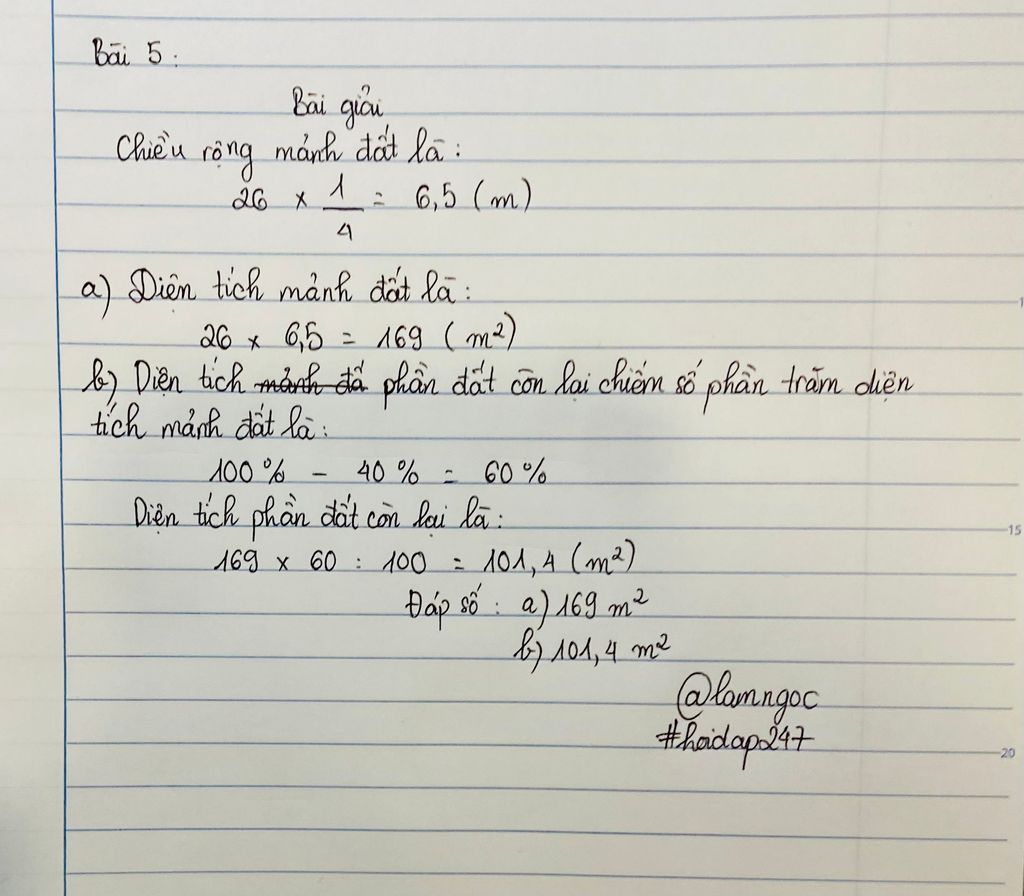 Bài 5 :
Bài giải
Chiều rộng mảnh đất là :
26 × 1/4 = 6,5 (m)
a) Diện tích mảnh đất là :
26 × 6,5 = 169 (m²)
b) Diện tích mảnh đấ phần đất còn lại chiếm số phần trăm diện
tích mảnh đất là :
100 % - 40 % = 60 %
Diện tích phần đất còn lại là :
169 × 60 : 100 = 101,4 (m²)
Đáp số : a) 169 m²
b) 101,4 m²
@lamngoc
#hoidap247
15
20